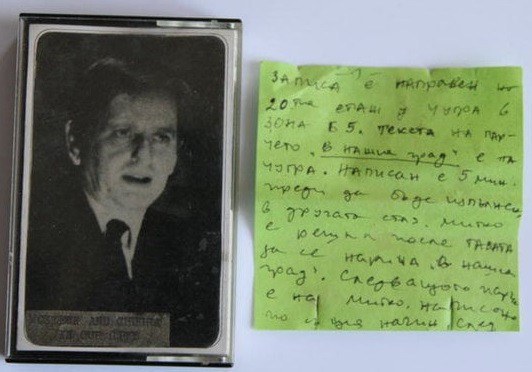 AND
IN OUR CITY
ЗАПИСА Е НАПРАВЕН НА
20ТИЯ ЕТАЖ У ЧУПРА В
ЗОНА Б 5. ТЕКСТА НА ПАР-
ЧЕТО "В НАШИЯ ГРАД" Е НА
ЧУПРА. НАПИСАН Е 5 МИН.
ПРЕДИ ДА БЪДЕ ИЗПЪЛНЕН
В ДРУГАТА СТАЯ. МИТКО
Е РЕШИЛ ПОСЛЕ
ДА СЕ НАРИЧА "В НАШИЯ
ГРАД". СЛЕДВАЩОТО ПАРЧЕ
Е НА МИТКО. НАПИСАНО
ПО СЪЩИЯ НАЧИН СЛЕД